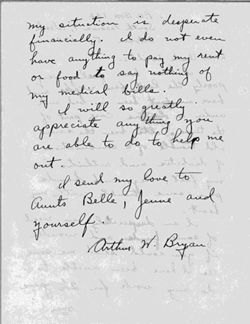 my situation is desperate
financially. I do not even
have anything to pay my rent
or food to say nothing of
my medical bills.
I will so greatly
appreciate anything you
are able to do to help me
out.
I send my love to
Aunts Belle, Jennie and
yourself.
Arthur W. Bryan